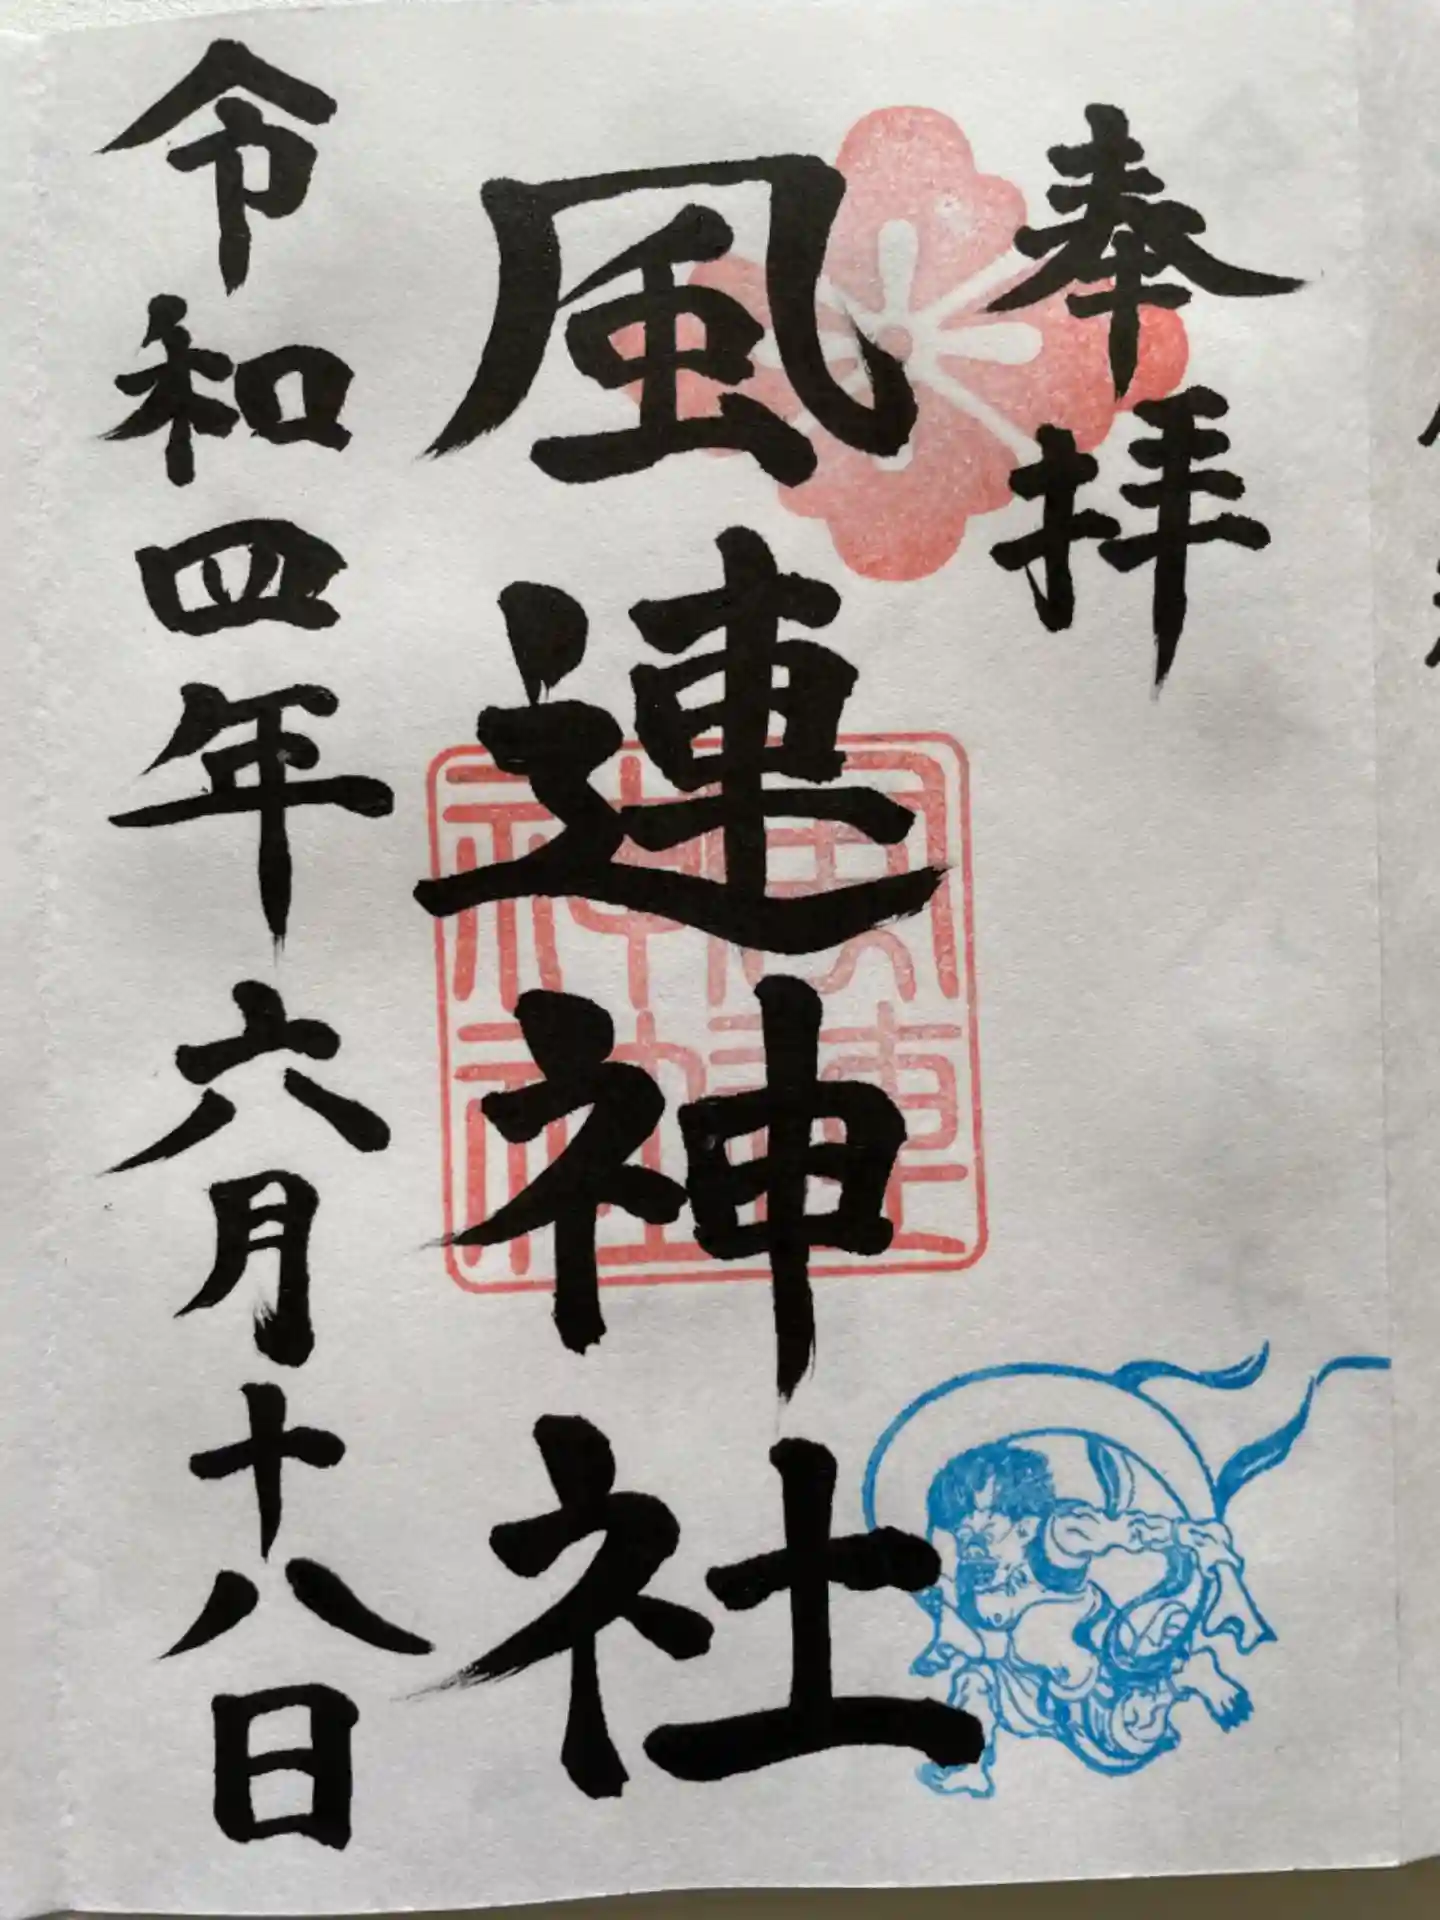 奉拝
風連神社
風連神社
令和四年六月十八日